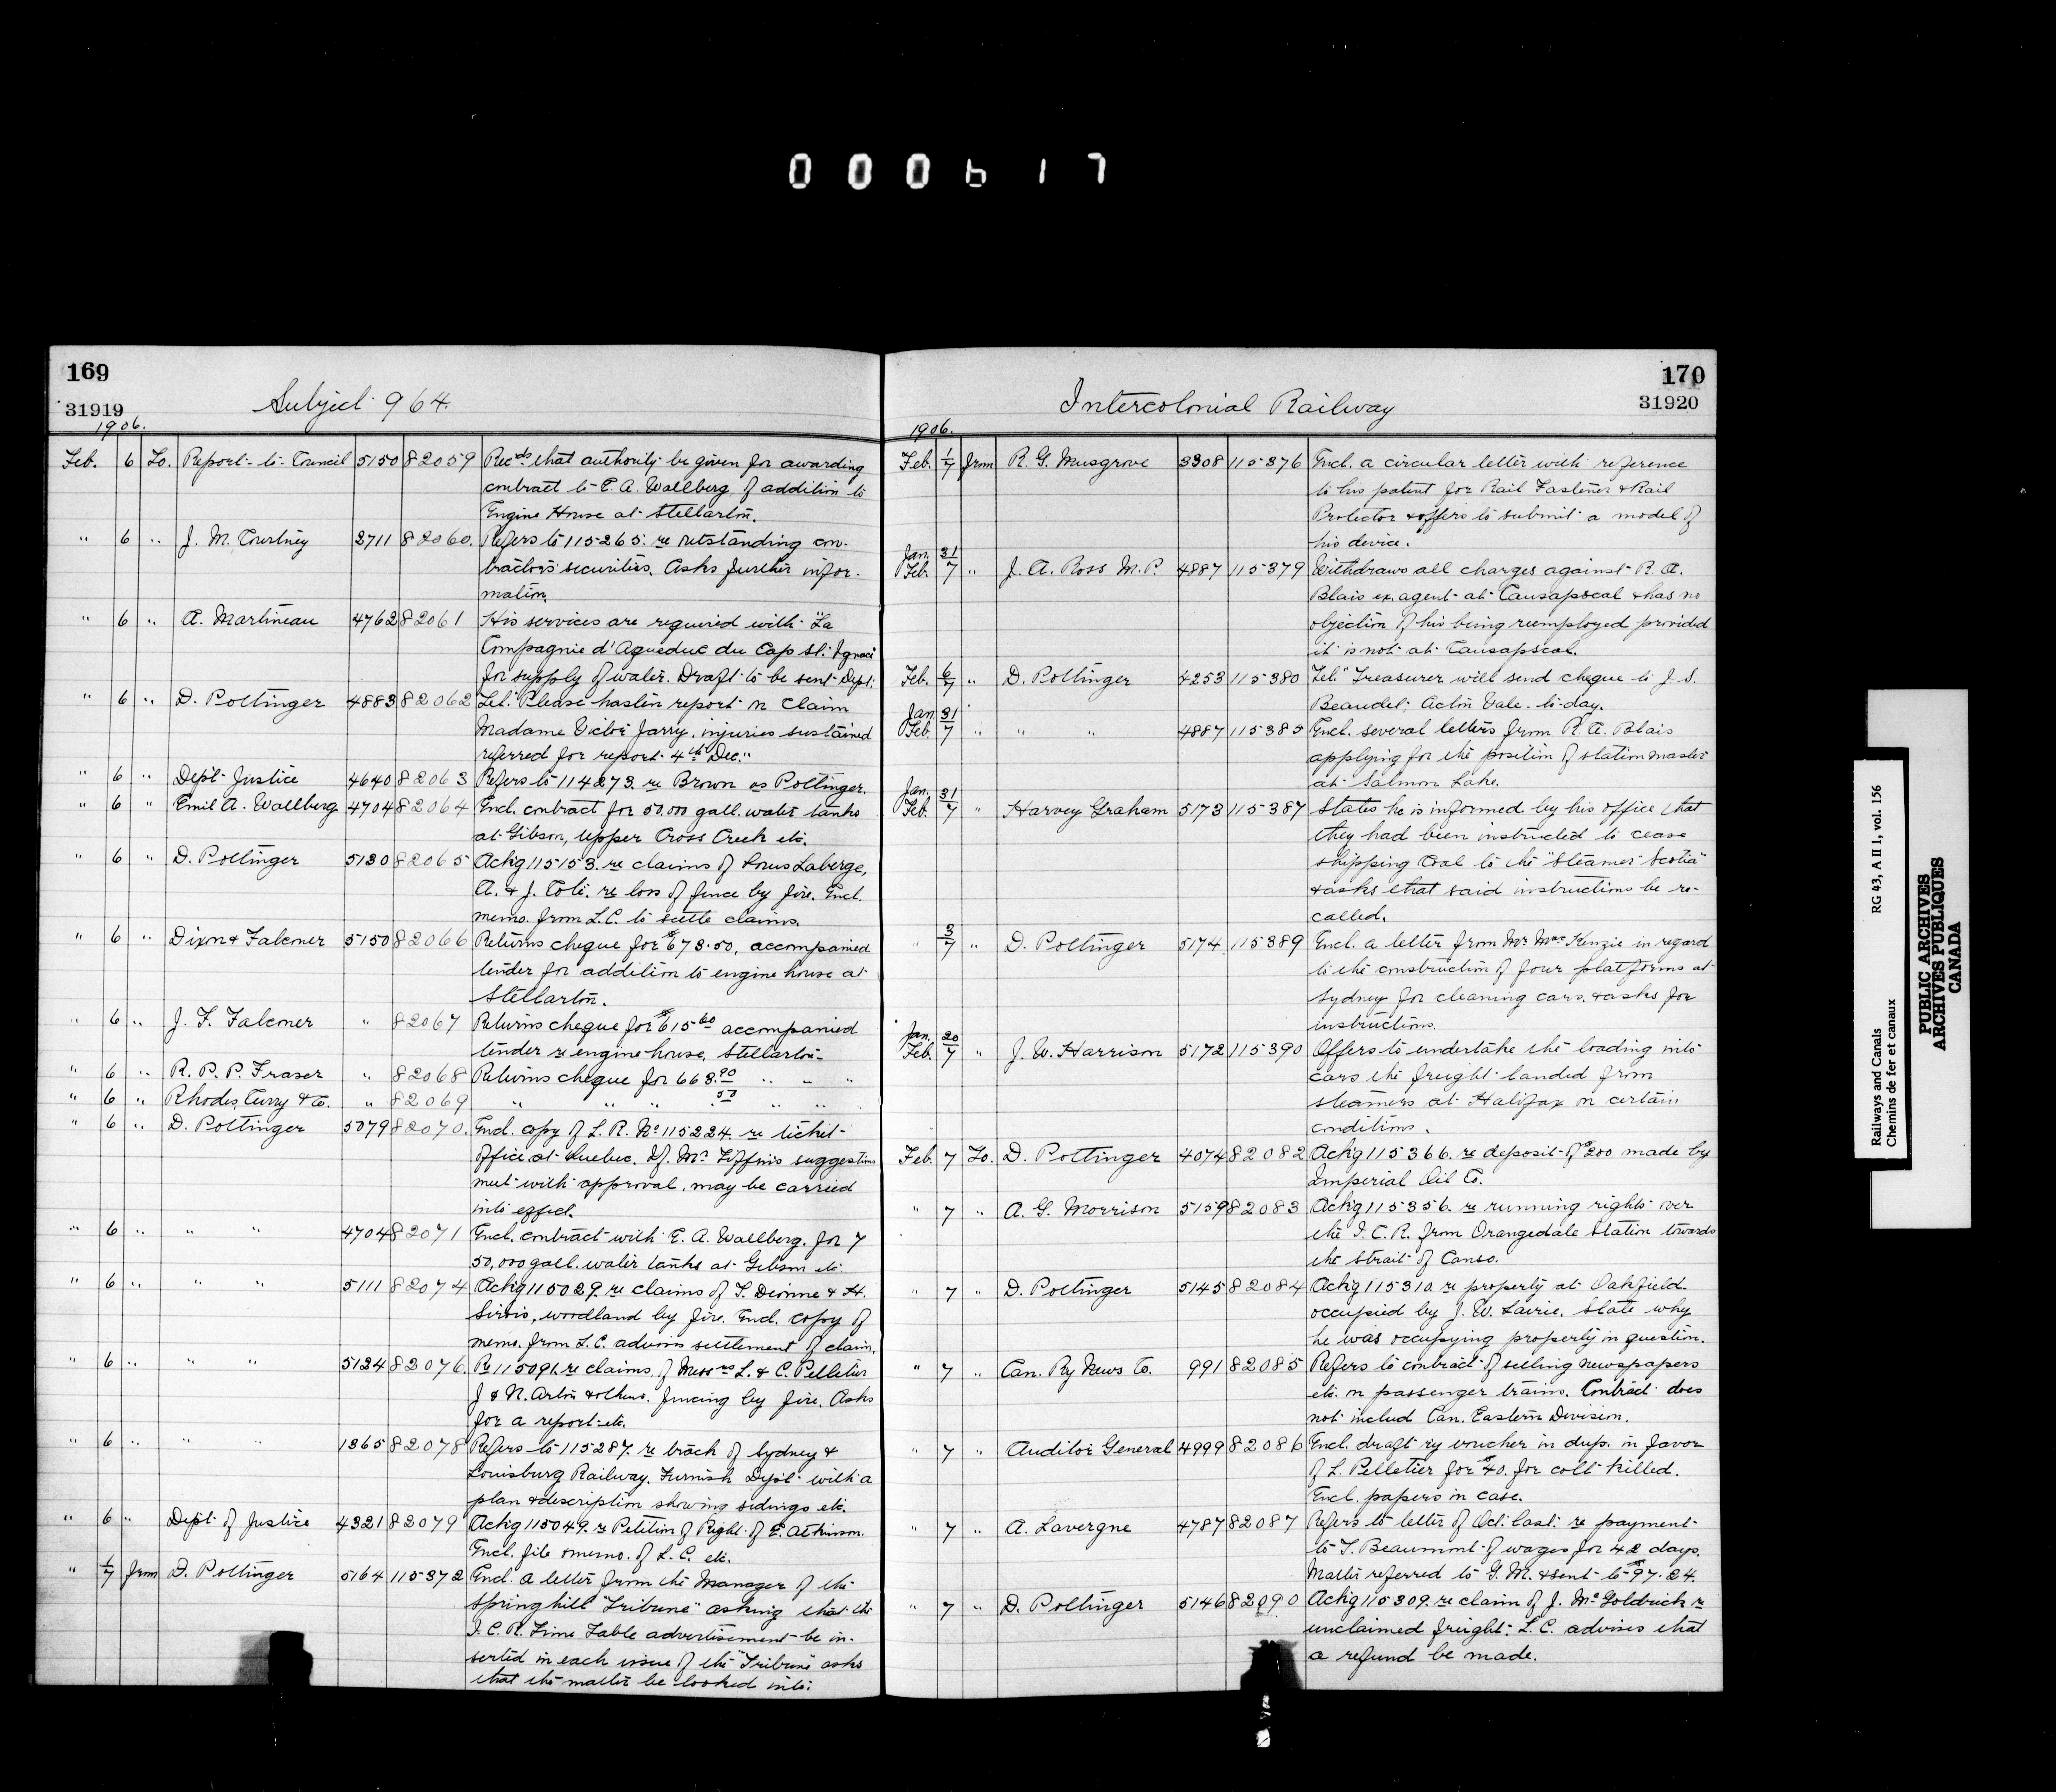 000617
169
31919
Subject 964.
1906.
Feb. 6 To. Report to Council 5150 82059 Recds that authority be given for awarding
contract to E. A. Wallberg of addition to
Engine House at Stellarton.
" 6 " J. M. Courtney 2711 82060. Refers to 115265. re outstanding con-
tractors' securities. Asks further infor-
mation.
" 6 " A. Martineau 4762 82061 His services are required with "La
Compagnie d'Aqueduc du Cap St. Ignace
for supply of water. Draft to be sent Dept.
" 6 " D. Pottinger 4883 82062 Tel. "Please hasten report on claim
Madame Victor Jarry, injuries sustained
referred for report 4th Dec."
" 6 " Dept Justice 4640 82063 Refers to 114273. re Brown vs Pottinger.
" 6 " Emil A. Wallberg 4704 82064 Encl. contract for 50,000 gall. water tanks
at Gibson, Upper Cross Creek etc.
" 6 " D. Pottinger 5130 82065 Ackg 115153. re claims of Laberge,
A. & J. Coté. re loss of fence by fire. Encl.
memo. from L.C. to settle claims.
" 6 " Dixon & Falconer 5150 82066 Returns cheque for $673.50, accompanied
tender for addition to engine house at
Stellarton.
" 6 " J. F. Falconer " 82067 Returns cheque for $615.60 accompanied
tender re engine house, Stellarton
" 6 " R. P. P. Fraser " 82068 Returns cheque for 668.90 " " "
" 6 " Rhodes, Curry & Co. " 82069 " " " " " "
" 6 " D. Pottinger 5079 82070. Encl. copy of L. R. No 115224 re ticket
office at Quebec. If Mr Tiffin's suggestions
meet with approval, may be carried
into effect.
" 6 " " " 4704 82071 Encl. contract with E. A. Wallberg. for 7
50,000 gall. water tanks at Gibson etc.
" 6 " " " 5111 82074 Ackg 115029. re claims of T. Dionne & H.
Sirois, woodland by fire. Encl. copy of
memo. from L.C. advising settlement of claim.
" 6 " " " 5124 82076. Re 115091. re claims of Messrs L. & C. Pelletier
J & N. & others. fencing by fire. Asks
for a report etc.
" 6 " " " 1365 82078 Refers to 115287. re track of Sydney &
Louisburg Railway. Furnish Dept with a
plan & description showing sidings etc.
" 6 " Dept of Justice 4321 82079 Ackg 115049. re Petition of Right of E. Atkinson.
Encl. file & memo. of L. C. etc.
" 1/7 from D. Pottinger 5164 115372 Encl. a letter from the Manager of the
Springhill "Tribune" asking that the
I. C. R. Time Table advertisement be in-
serted in each issue of the "Tribune" asks
that the matter be looked into.
170
31920
Intercolonial Railway
1906.
Feb. 1/7 from R. G. Musgrove 3308 115376 Encl. a circular letter with reference
to his patent for Rail Fastener & Rail
Protector & offers to submit a model of
his device.
Jan. 31
Feb. 7 " J. A. Ross M.P. 4887 115379 Withdraws all charges against R. A.
Blais ex. agent at Causapscal & has no
objection of his being reemployed provided
it is not at Causapscal.
Feb. 6/7 " D. Pottinger 4253 115380 Tel. "Treasurer will send cheque to J. S.
Beaudet, Acton Vale to-day.
Jan 31
Feb. 7 " " " 4887 115385 Encl. several letters from R. A. Blais
applying for the position of station master
at Salmon Lake.
Jan. 31
Feb. 7 " Harvey Graham 5173 115387 States he is informed by his office that
they had been instructed to cease
shipping Coal to the "Steamer Scotia"
& asks that said instructions be re-
called.
" 3/7 " D. Pottinger 5174 115389 Encl. a letter from Mr MacKenzie in regard
to the construction of four platforms at
Sydney for cleaning cars. & asks for
instructions.
Jan. 20
Feb. 7 " J. W. Harrison 5172 115390 Offers to undertake the loading into
cars the freight landed from
steamers at Halifax on certain
conditions.
Feb. 7 To. D. Pottinger 4074 82082 Ackg 115366. re deposit of $200 made by
Imperial Oil Co.
" 7 " A. G. Morrison 5159 82083 Ackg 115356. re running rights over
the I. C. R. from Orangedale Station towards
the Strait of Canso.
" 7 " D. Pottinger 5145 82084 Ackg 115310. re property at Oakfield.
occupied by J. W. Laurie. State why
he was occupying property in question.
" 7 " Can. Ry News Co. 991 82085 Refers to contract of selling newspapers
etc. on passenger trains. Contract does
not include Can. Eastern Division.
" 7 " Auditor General 4999 82086 Encl. draft ry voucher in dup. in favor
of L. Pelletier for $40. for colt killed.
Encl. papers in case.
" 7 " A. Lavergne 4787 82087 Refers to letter of Oct. last. re payment
to T. Beaumont of wages for 42 days.
Matter referred to G. M. & sent to $97.24.
" 7 " D. Pottinger 5146 82090 Ackg 115309. re claim of J. McGoldrick re
unclaimed freight. L. C. advises that
a refund be made.
Railways and Canals RG 43, A II 1, vol. 156
Chemins de fer et canaux
PUBLIC ARCHIVES
ARCHIVES PUBLIQUES
CANADA